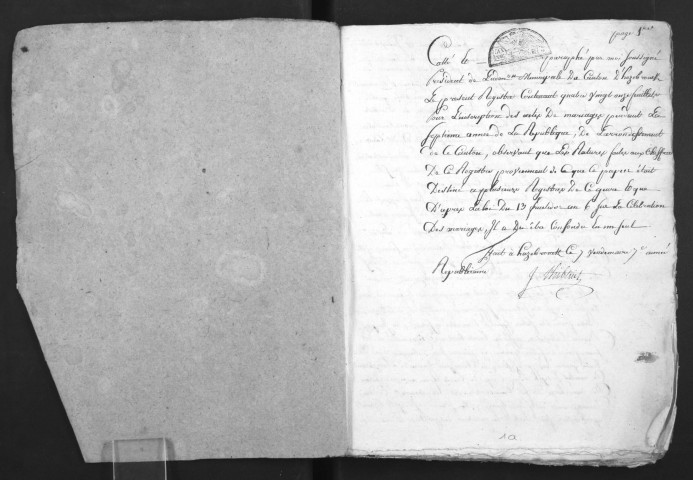 page 1ere
Cotté le paraphé par moi soussigné
Président de L'adm.on Municipale Du Canton D'hazebrouck
Le présent Registre Contenant quatre vingt onze feuillets
Pour L'inscription des actes De mariages pendant La
septieme année de La République, De L'arrondissement
de ce Canton, observant que Les Ratures faites aux chiffres
De Ce Registre proviennent de ce que ce papier était
Destiné a plusieurs Registres De Ce genre & que
D'apres La loi Du 13 fructidor an 6 sur La Célébration
Des mariages, Il a Du être Confondu en un seul
fait à hazebrouck Ce 7 vendemiaire 7e année
Républicaine
10